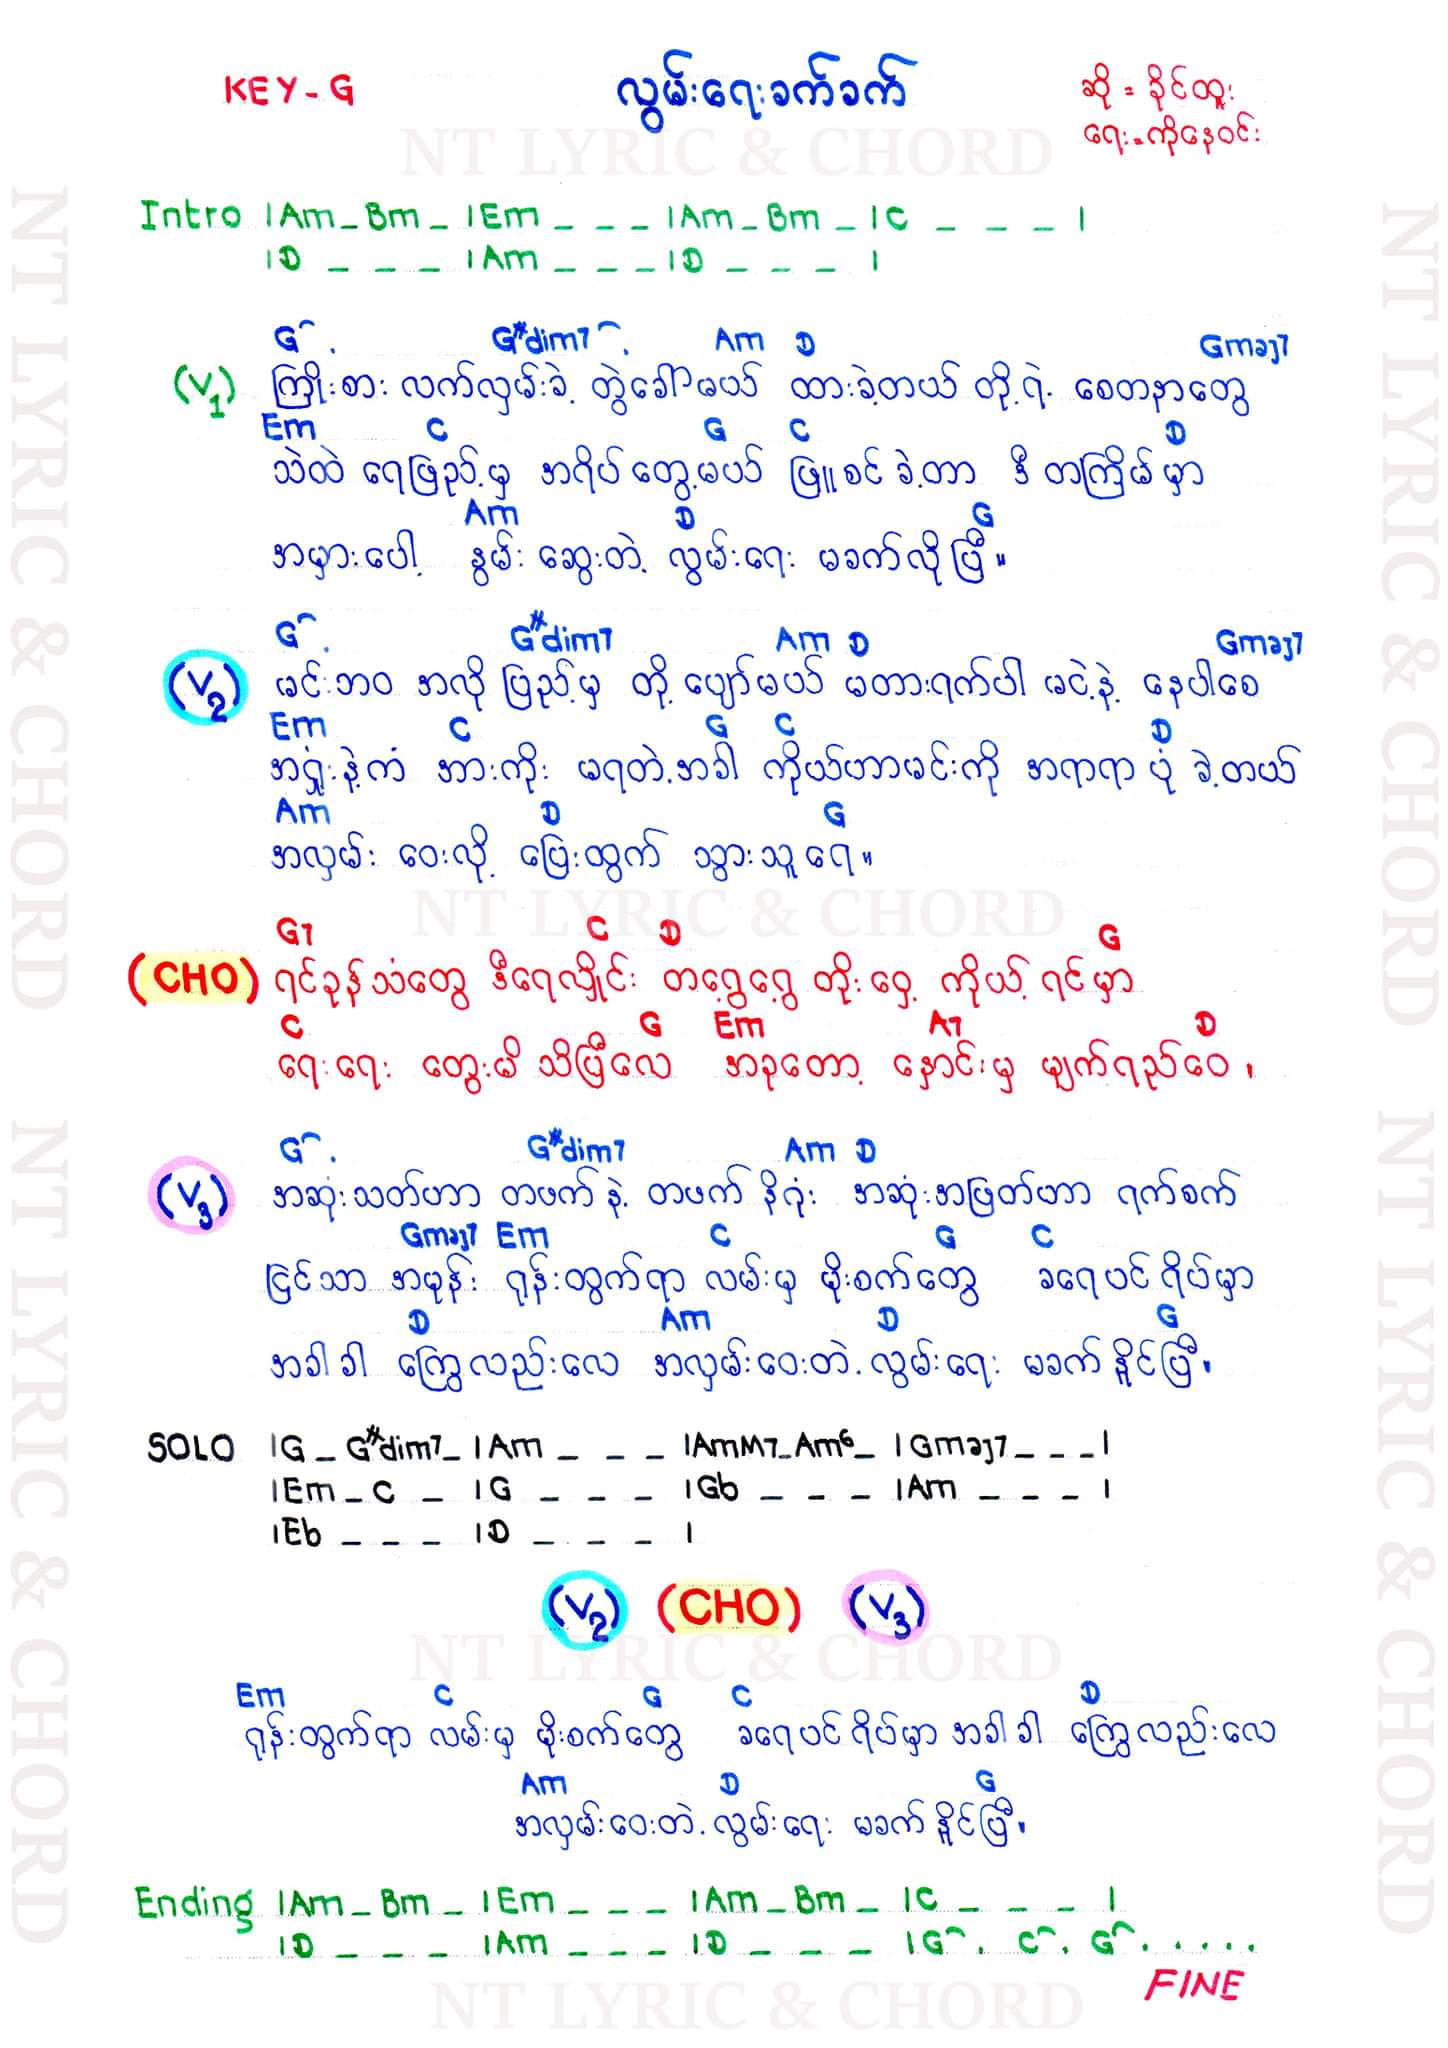 KEY - G
လွမ်းရေးခက်ခက်
ဆို = ခိုင်ထူး
ရေး = ကိုနေဝင်း
NT LYRIC & CHORD
Intro |Am _ Bm _ |Em _ _ _ |Am _ Bm _ |C _ _ _ |
|D _ _ _ |Am _ _ _ |D _ _ _ |
G . G#dim7 . Am D Gmaj7
(V1) ကြိုးစား လက်လှမ်းခဲ့ တွဲခေါ်မယ် ထားခဲ့တယ် တို့ရဲ့ စေတနာတွေ
Em C G C D
သဲထဲ ရေဖြည့်မှ အရိပ်တွေ့မယ် ဖြူစင်ခဲ့တာ ဒီ တကြိမ်မှာ
Am D G
အမှားပေါ့ နွမ်း ဆွေးတဲ့ လွမ်းရေး မခက်လိုပြီ။
G . G#dim7 Am D Gmaj7
(V2) မင်းဘဝ အလို ပြည့်မှ တို့ ပျော်မယ် မတားရက်ပါ မငဲ့နဲ့ နေပါစေ
Em C G C D
အရှုံးနဲ့ကံ အားကိုး မရတဲ့အခါ ကိုယ်ဟာမင်းကို အရာရာ ပုံ ခဲ့တယ်
Am D G
အလှမ်း ဝေးလို့ ပြေးထွက် သွားသူ ရေ။
NT LYRIC & CHORD
G7 C D G
(CHO) ရင်ခုန်သံတွေ ဒီရေလှိုင်း တရွေ့ရွေ့ တိုးဝှေ့ ကိုယ့် ရင်မှာ
C G Em A7 D
ရေးရေး တွေးမိ သိပြီလေ အခုတော့ နှောင်းမှ မျက်ရည်ဝေ ၊
G . G#dim7 Am D
(V3) အဆုံးသတ်ဟာ တဖက်နဲ့ တဖက် နိဂုံး အဆုံးအဖြတ်ဟာ ရက်စက်
Gmaj7 Em C G C
ငြင်သာ အမုန်း ရုန်းထွက်ရာ လမ်းမှ မိုးစက်တွေ ခရေပင်ရိပ်မှာ
D Am D G
အခါခါ ကြွေလည်းလေ အလှမ်းဝေးတဲ့ လွမ်းရေး မခက်နိုင်ပြီ။
SOLO |G _ G#dim7 _ |Am _ _ _ |AmM7 _ Am6 _ |Gmaj7 _ _ _ |
|Em _ C _ |G _ _ _ |Gb _ _ _ |Am _ _ _ |
|Eb _ _ _ |D _ _ _ |
(V2) (CHO) (V3)
NT LYRIC & CHORD
Em C G C D
ရုန်းထွက်ရာ လမ်းမှ မိုးစက်တွေ ခရေပင်ရိပ်မှာ အခါခါ ကြွေလည်းလေ
Am D G
အလှမ်းဝေးတဲ့ လွမ်းရေး မခက်နိုင်ပြီ။
Ending |Am _ Bm _ |Em _ _ _ |Am _ Bm _ |C _ _ _ |
|D _ _ _ |Am _ _ _ |D _ _ _ |G . C . G . . . . .
FINE
NT LYRIC & CHORD
NT LYRIC & CHORD
NT LYRIC & CHORD
NT LYRIC & CHORD
NT LYRIC & CHORD